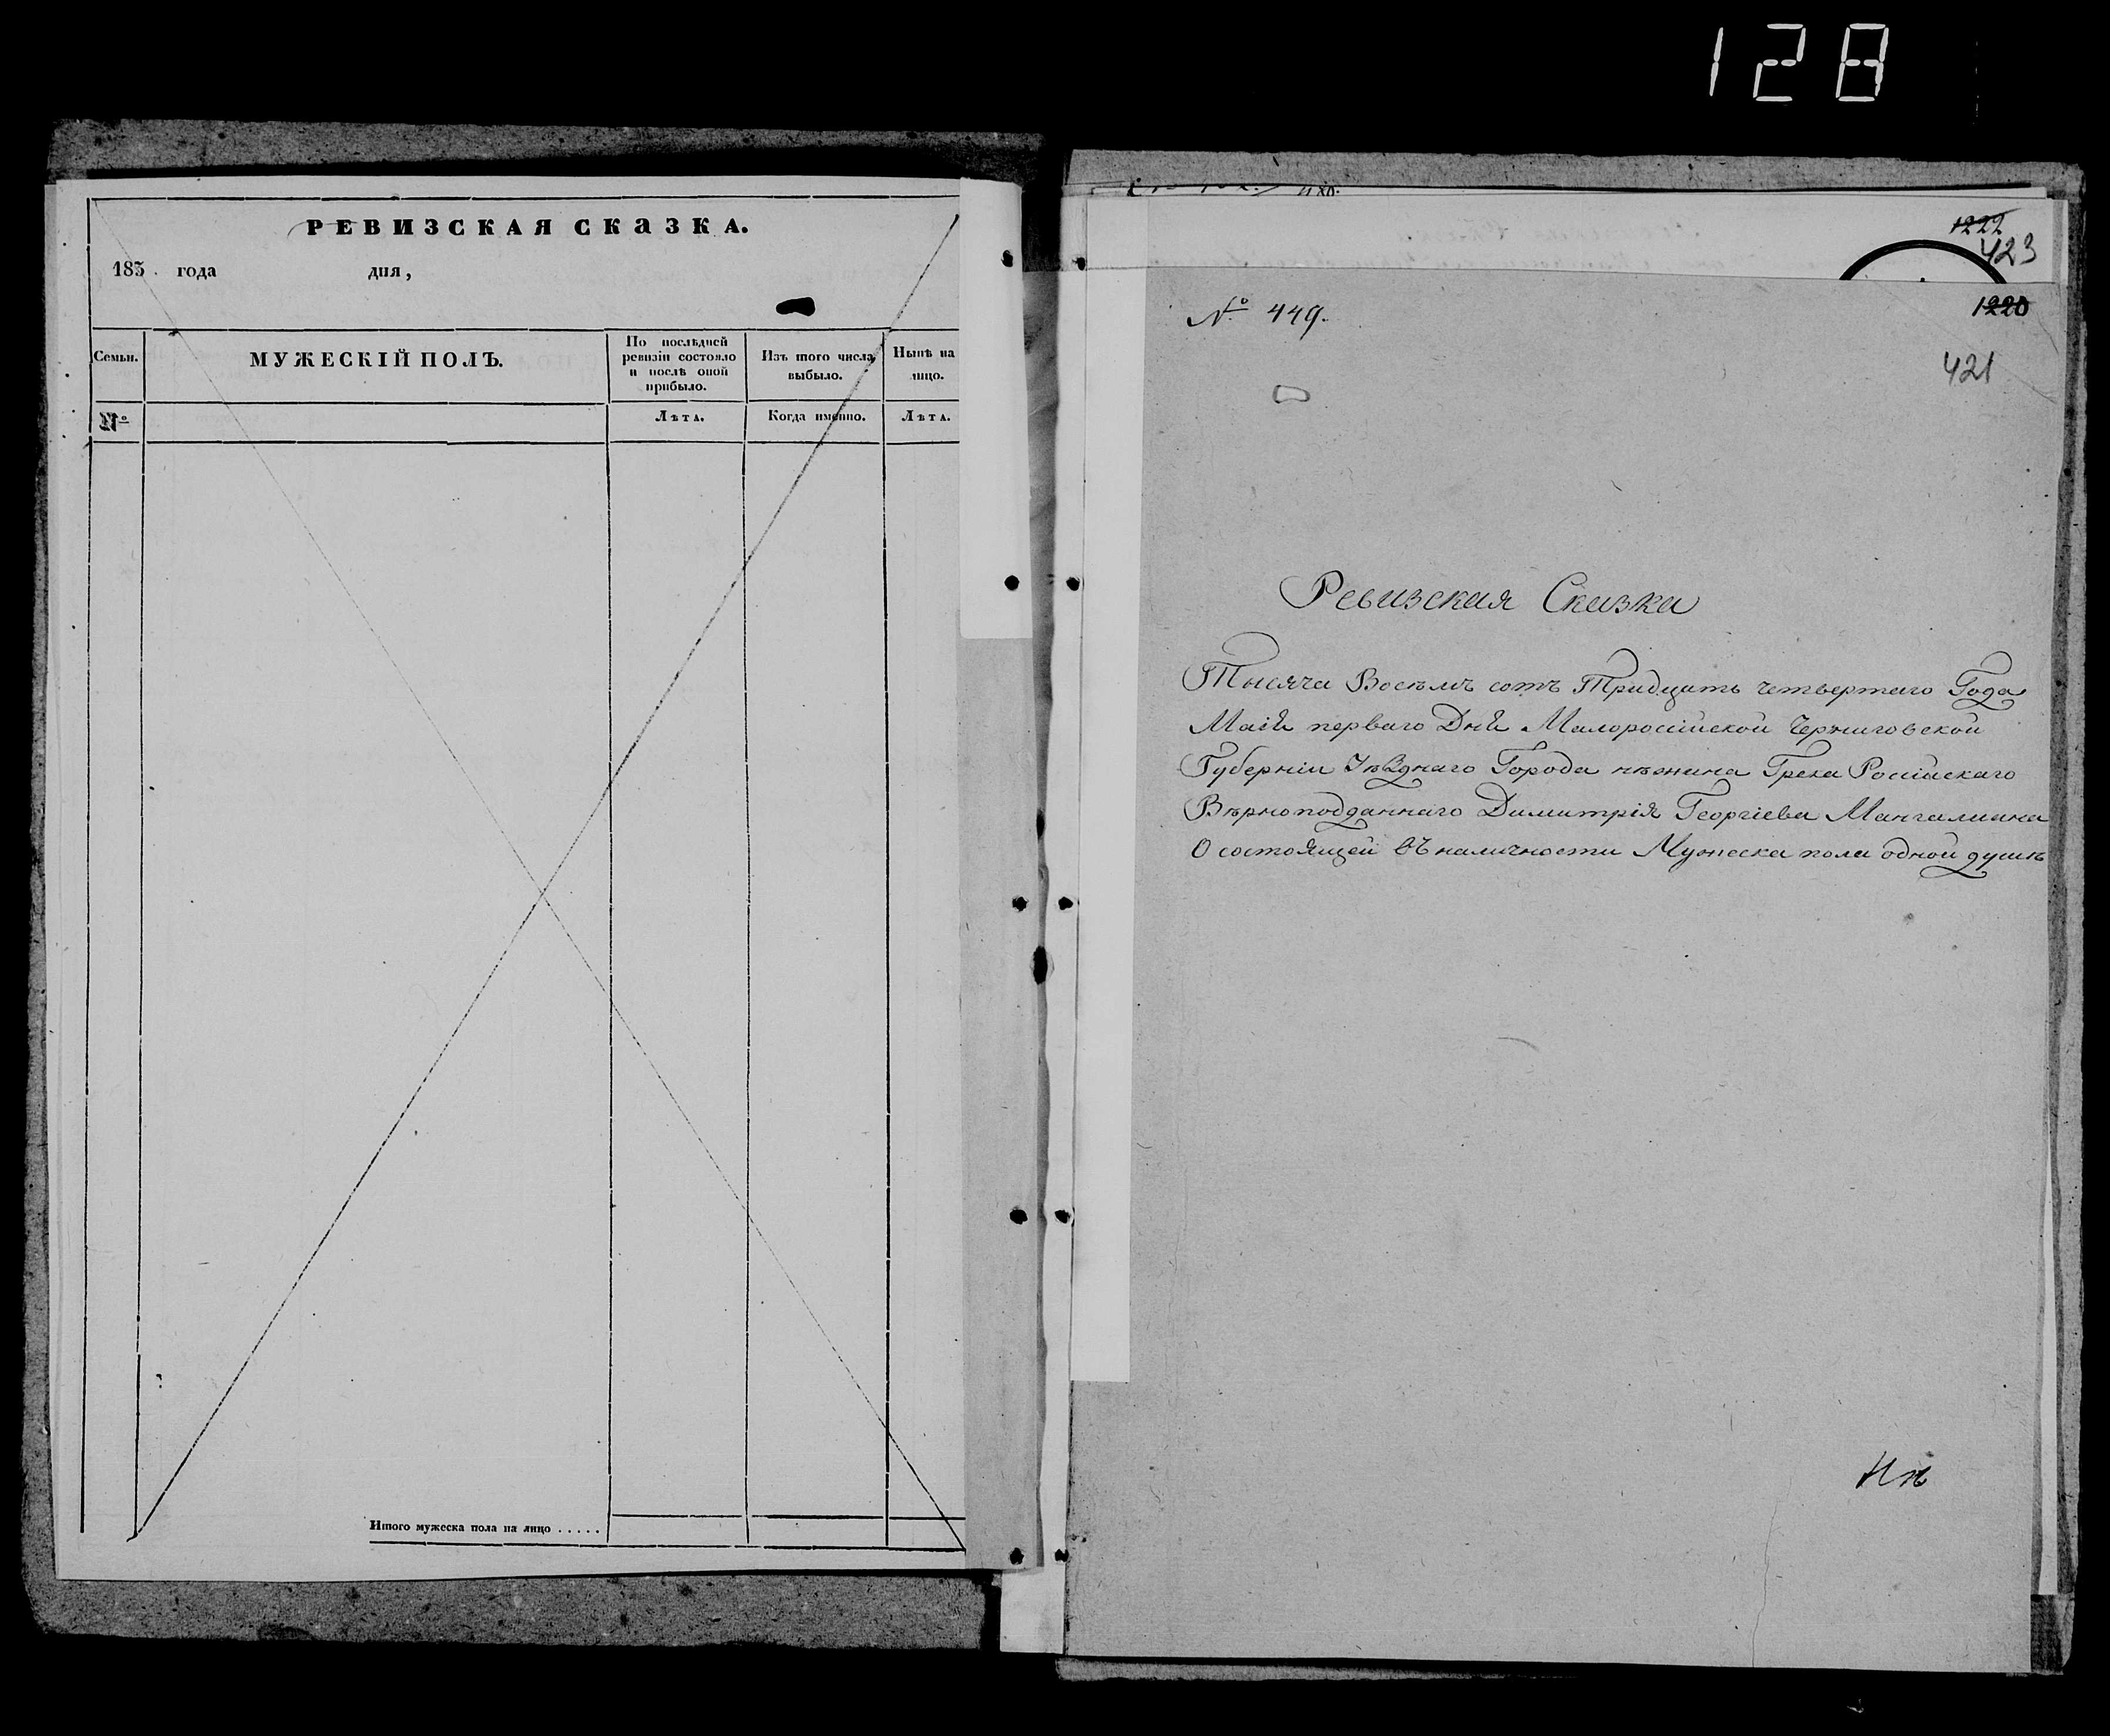 128
РЕВИЗСКАЯ СКАЗКА.
183 . года дня,
Семьи.
МУЖЕСКІЙ ПОЛЪ.
По послѣдней
ревизіи состояло
и послѣ оной
прибыло.
Изъ того числа
выбыло.
Нынѣ на
лицо.
№
Лѣта.
Когда именно.
Лѣта.
Итого мужеска пола на лицо . . . . .
1222
423
№ 449.
1220
421
Ревизская Сказка
Тысяча Восемъ сотъ Тридцать четвертаго Года
Маія перваго Дня Малоросійской Черниговской
Губерніи Уѣзднаго Города нѣжина Грека Російскаго
Вѣрноподданнаго Димитрія Георгіева Мангалиана
О состоящей въ наличности Мужеска пола одной душѣ